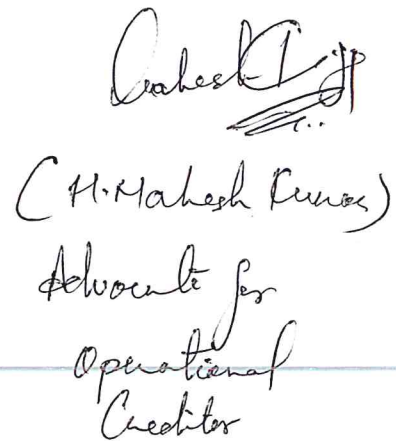 (H. Mahesh Kumar)
Advocate for
Operational
Creditor